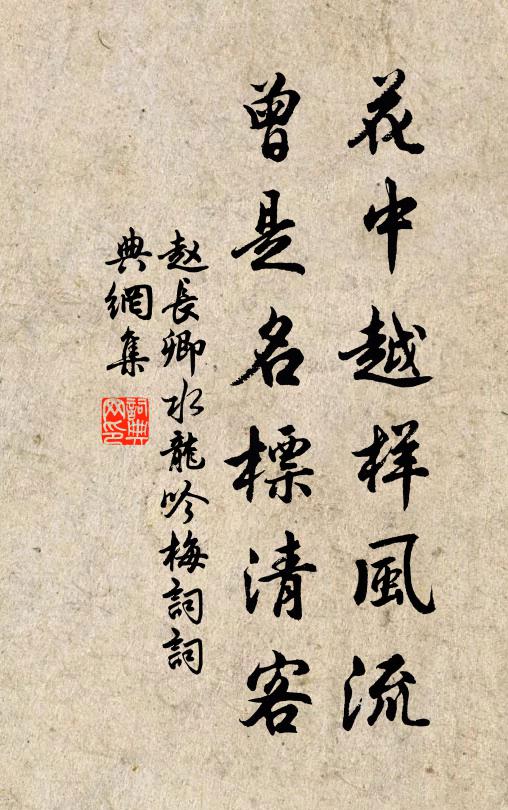 花中越样風流
曾是名標清客
赵長卿水龍吟梅詞詞
典網集
詞典網印